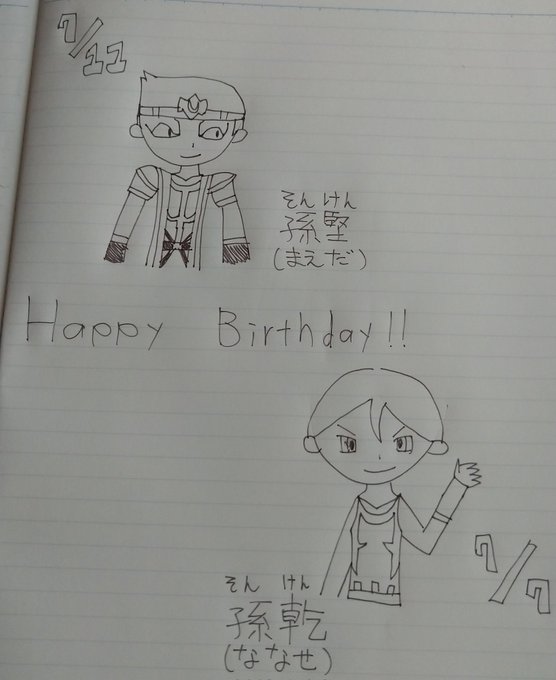 7/11
そん けん
孫堅
(まえだ)
Happy Birthday!!
7/7
そん けん
孫乾
(ななせ)